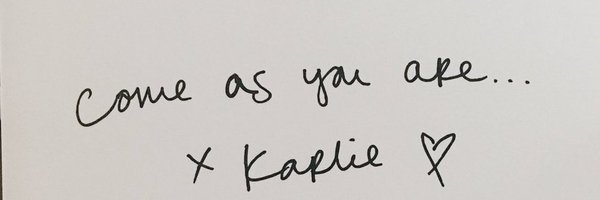 come as you are...
x Karlie ♡